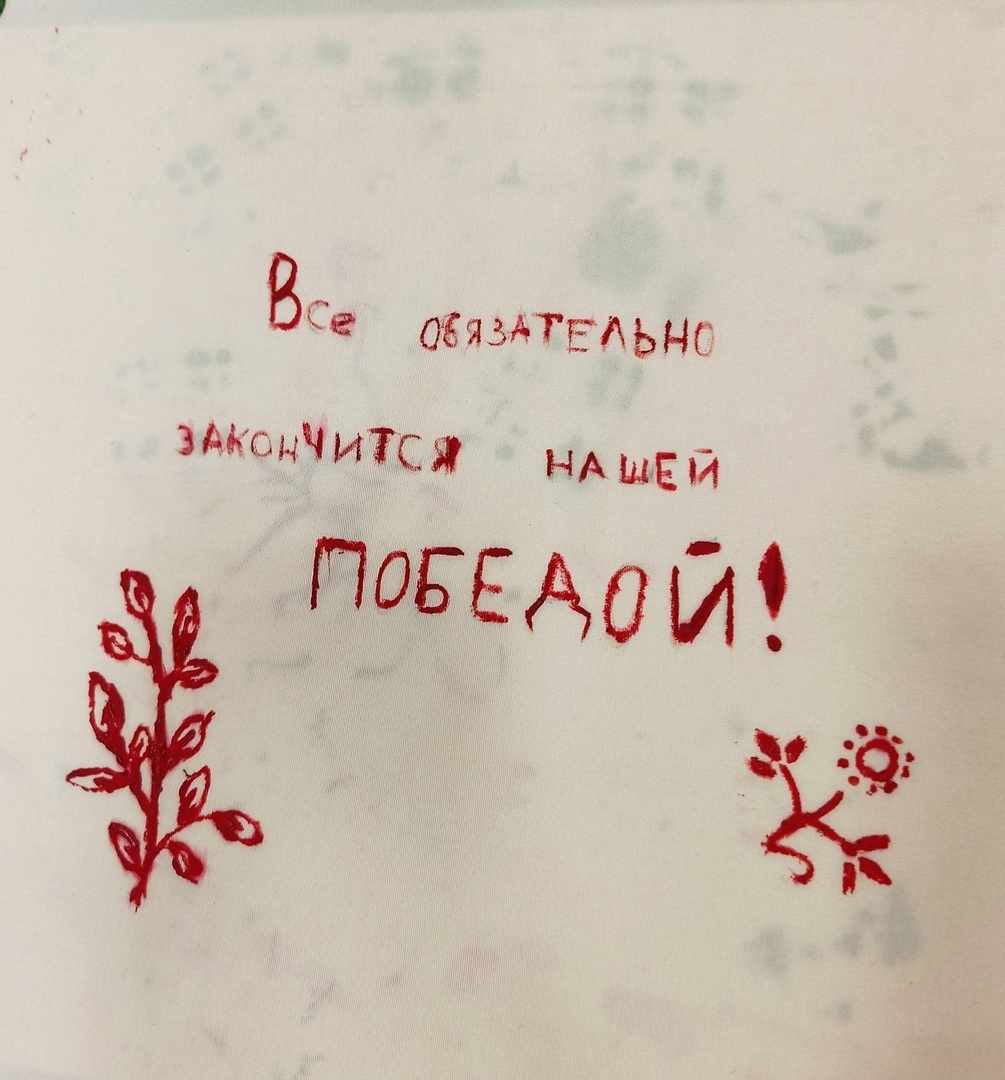 Все ОБЯЗАТЕЛЬНО
ЗАКОНЧИТСЯ НАШЕЙ
ПОБЕДОЙ!